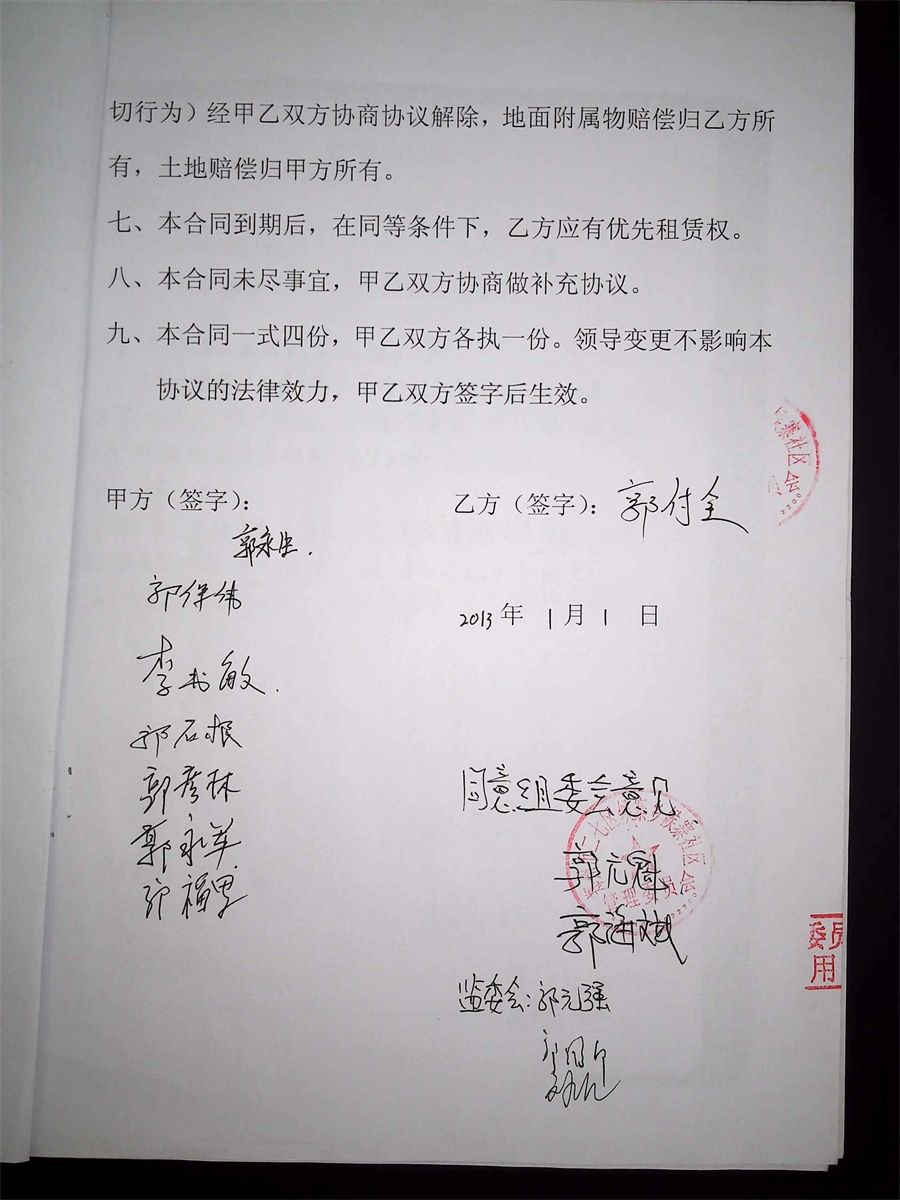 切行为）经甲乙双方协商协议解除，地面附属物赔偿归乙方所
有，土地赔偿归甲方所有。
七、本合同到期后，在同等条件下，乙方应有优先租赁权。
八、本合同未尽事宜，甲乙双方协商做补充协议。
九、本合同一式四份，甲乙双方各执一份。领导变更不影响本
协议的法律效力，甲乙双方签字后生效。
寨社区
会
甲方（签字）：
乙方（签字）：郭付全
郭永忠.
郭保伟
2013年 1月 1 日
李书敏.
郭石根
郭彦林
郭永军
郭福里
同意组委会意见.
社区
会
管理委员
郭元魁
郭海斌
委员
用
监委会：郭元强